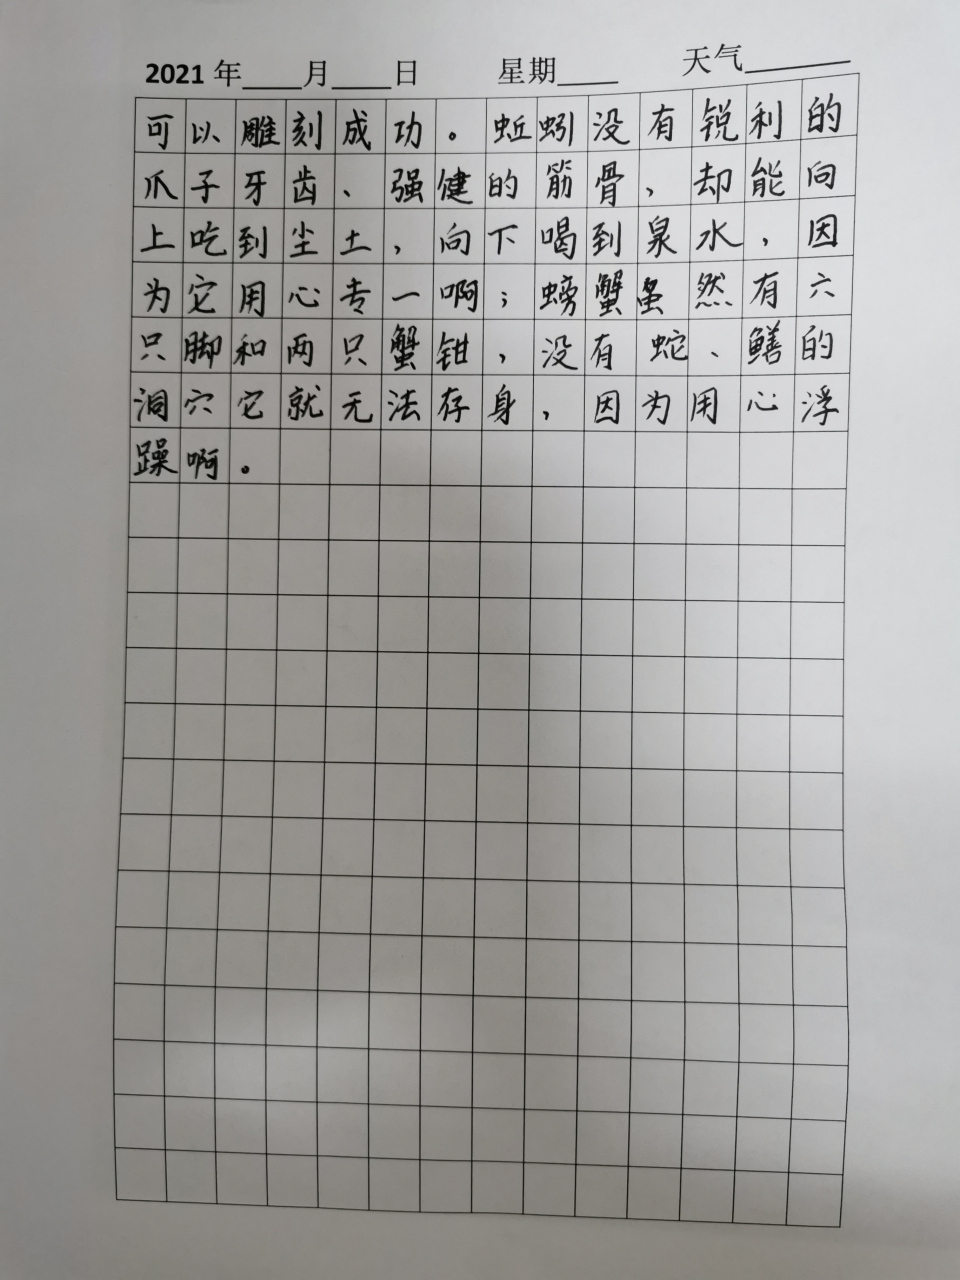 2021 年____月____日 星期____ 天气_______
可以雕刻成功。蚯蚓没有锐利的
爪子牙齿、强健的筋骨，却能向
上吃到尘土，向下喝到泉水，因
为它用心专一啊；螃蟹虽然有六
只脚和两只蟹钳，没有蛇、鳝的
洞穴它就无法存身，因为用心浮
躁啊。